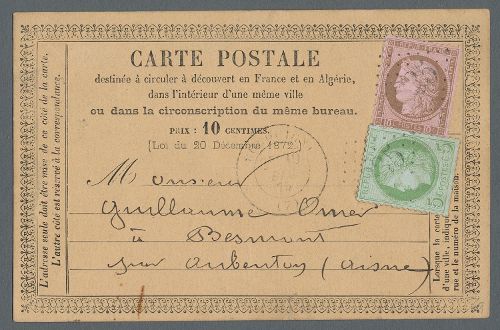 CARTE POSTALE
destinée à circuler à découvert en France et en Algérie,
dans l'intérieur d'une même ville
ou dans la circonscription du même bureau.
PRIX : 10 CENTIMES.
(Loi du 20 Décembre 1872.)
Monsieur
Guillaume Omer
à Besmont
par Aubenton (Aisne)
L'adresse seule doit être mise de ce côté de la carte.
L'autre côté est réservé à la correspondance.
Lorsque la carte
d'une ville, indique
rue et le numéro de la maison.
10 10
5 5